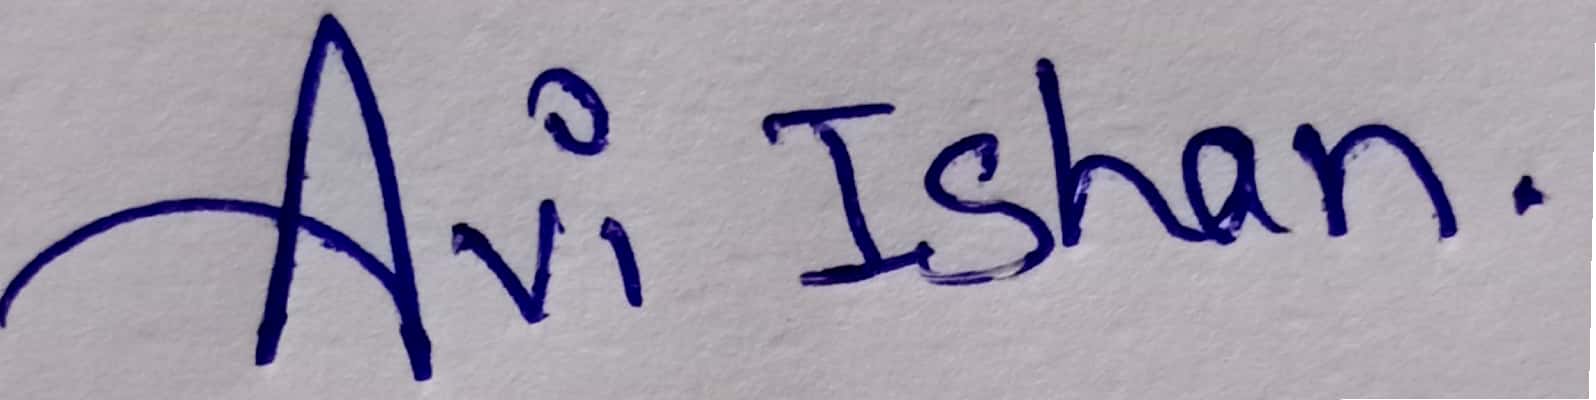 Avi Ishan.